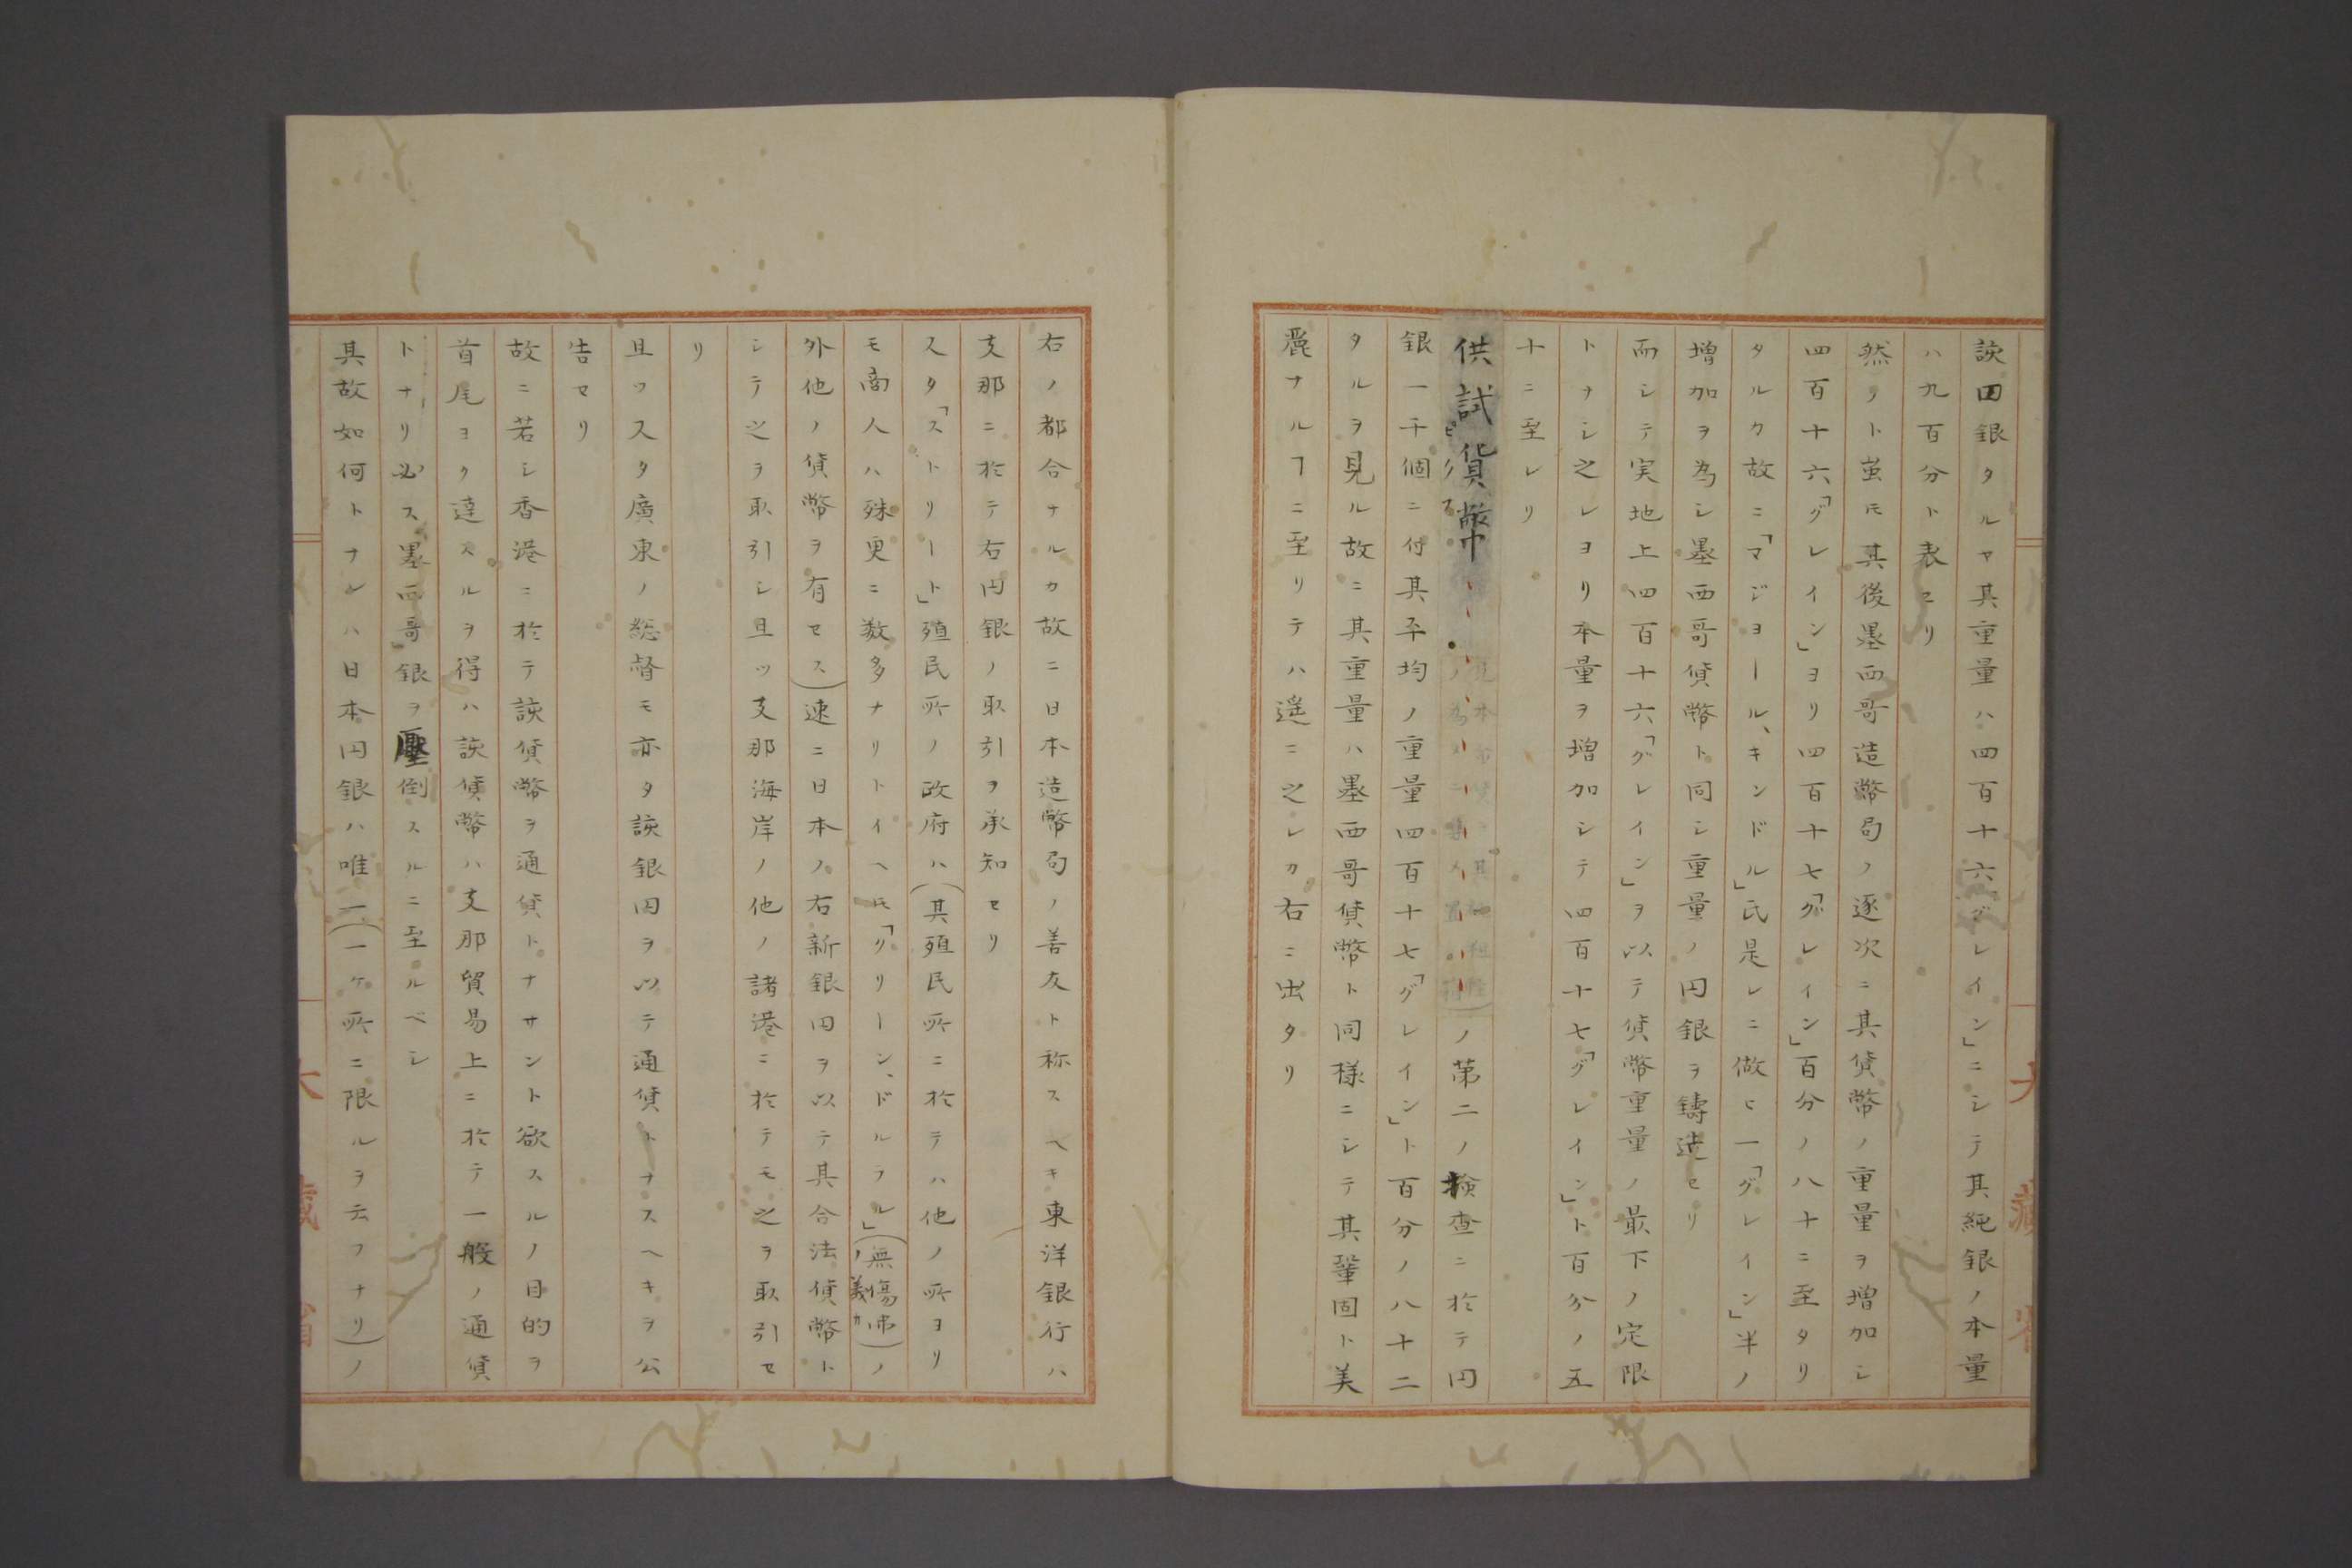 該円銀タルヤ其重量ハ四百十六「グレイン」ニシテ其純銀ノ本量
ハ九百分ト表セリ
然リト虽モ其後墨西哥造幣局ノ逐次ニ其貨幣ノ重量ヲ増加シ
四百十六「グレイン」ヨリ四百十七「グレイン」百分ノ八十ニ至タリ
タルカ故ニ「マジヨール、キンドル」氏是レニ倣ヒ一「グレイン」半ノ
増加ヲ為シ墨西哥貨幣ト同シ重量ノ円銀ヲ鋳造セリ
而シテ実地上四百十六「グレイン」ヲ以テ貨幣重量ノ最下ノ定限
トナシ之レヨリ本量ヲ増加シテ四百十七「グレイン」ト百分ノ五
十ニ至レリ
供試貨幣ノ第二ノ検査ニ於テ円
銀一千個ニ付其平均ノ重量四百十七「グレイン」ト百分ノ八十二
タルヲ見ル故ニ其重量ハ墨西哥貨幣ト同様ニシテ其鞏固ト美
麗ナルヿニ至リテハ遥ニ之レカ右ニ出タリ
右ノ都合ナルカ故ニ日本造幣局ノ善友ト称スヘキ東洋銀行ハ
支那ニ於テ右円銀ノ取引ヲ承知セリ
スタ「ストリート」殖民所ノ政府ハ(其殖民所ニ於テハ他ノ所ヨリ
モ商人ハ殊更ニ数多ナリトイヘ𪜈「クリーン、ドルラル」(無傷弗ノ義カ)ノ
外他ノ貨幣ヲ有セス)速ニ日本ノ右新銀円ヲ以テ其合法貨幣ト
シテ之ヲ取引シ且ツ支那海岸ノ他ノ諸港ニ於テモ之ヲ取引セ
リ
且ツスタ廣東ノ総督モ亦タ該銀円ヲ以テ通貨トナスヘキヲ公
告セリ
故ニ若シ香港ニ於テ該貨幣ヲ通貨トナサント欲スルノ目的ヲ
首尾ヨク達スルヲ得ハ該貨幣ハ支那貿易上ニ於テ一般ノ通貨
トナリ必ス墨西哥銀ヲ壓倒スルニ至ルベシ
其故如何トナレハ日本円銀ハ唯一(一ケ所ニ限ルヲ云フナリ)ノ
大蔵省